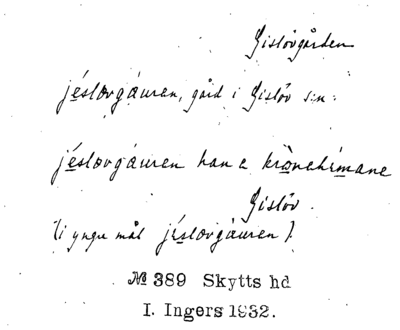 Gislövgården
jéslovgáuren, gård i Gislöv s:n.
jéslovgáuren han e krònehímane
Gislöv.
(i yngre mål jíslovgáuren).
№ 389 Skytts hd
I. Ingers 1932.